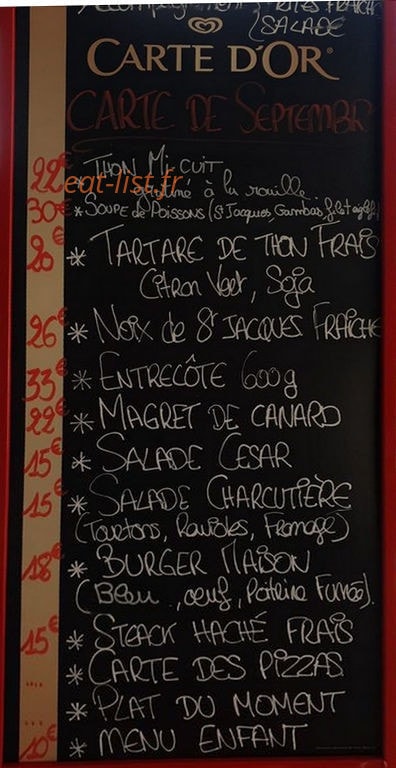 SALADE
CARTE D'OR
CARTE DE SEPTEMBR
22€ THON MI-CUIT
eat-list.fr
à la rouille
30€ * SOUPE DE POISSONS (St Jacques, Gambas,
20€ * TARTARE DE THON FRAIS
Citron Vert, Soja
26€ * NOIX de St JACQUES FRAICHE
33€ * ENTRECÔTE 600g
22€ * MAGRET DE CANARD
15€ * SALADE CESAR
15€ * SALADE CHARCUTIÈRE
(Tourtons, Ravioles, Fromage)
18€ * BURGER MAISON
(Bleu, oeuf, Poitrine Fumée).
15€ * STEACK HACHÉ FRAIS
.... * CARTE DES PIZZAS
... * PLAT DU MOMENT
10€ * MENU ENFANT